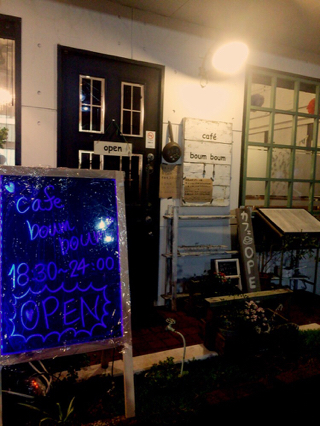 open
café
boum boum
cafe
boum
boum
18:30~24:00
OPEN
カフェOPE